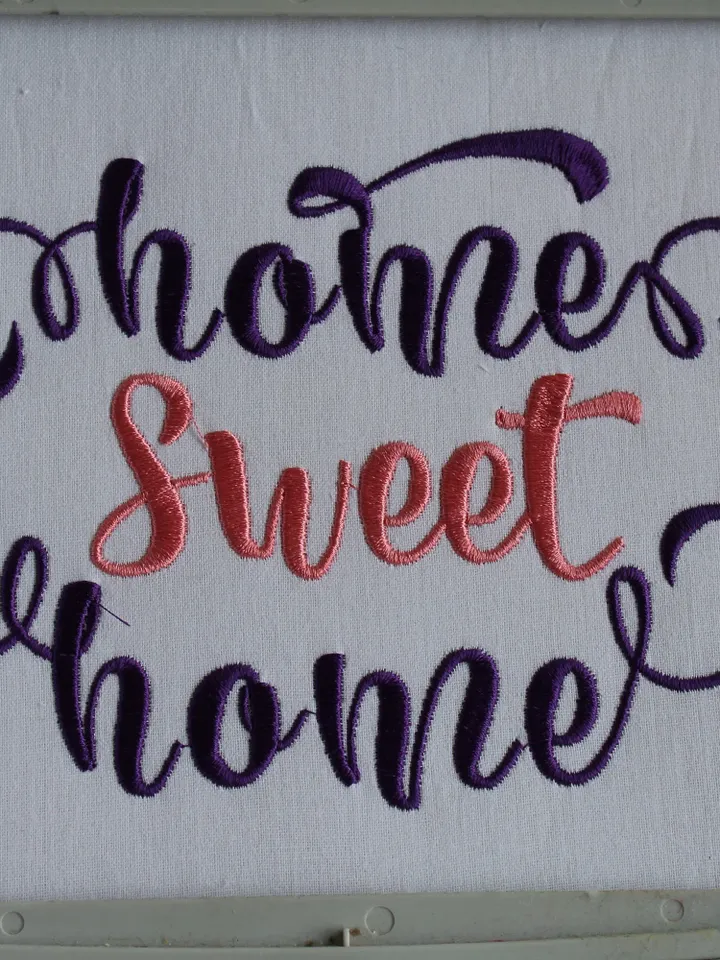 home
Sweet
home